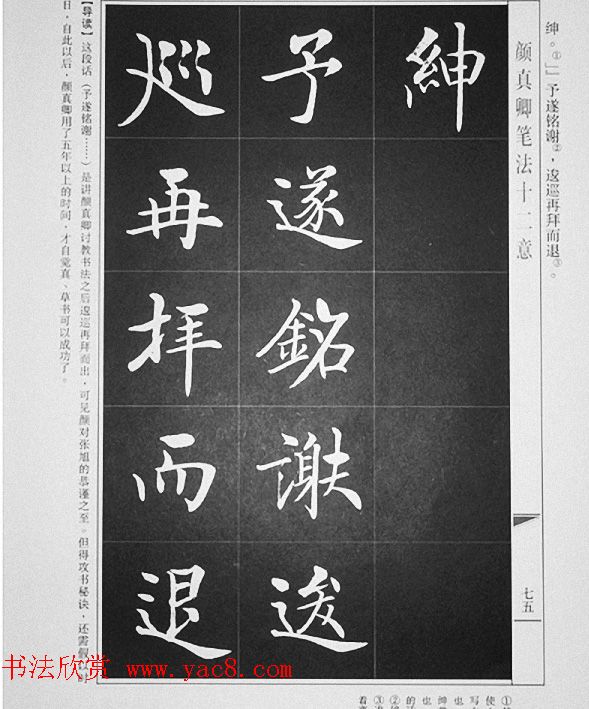 绅。①」予遂铭谢②，逡巡再拜而退③。
颜真卿笔法十二意
七五
紳
予遂銘謝逡
巡再拜而退
【导读】这段话（予遂铭谢……）是讲颜真卿讨教书法之后逡巡再拜而出，可见颜对张旭的恭谨之至。但得攻书秘诀，还需假以时
日，自此以后，颜真卿用了五年以上的时间，才自觉真、草书可以成功了。
书法欣赏 www.yac8.com